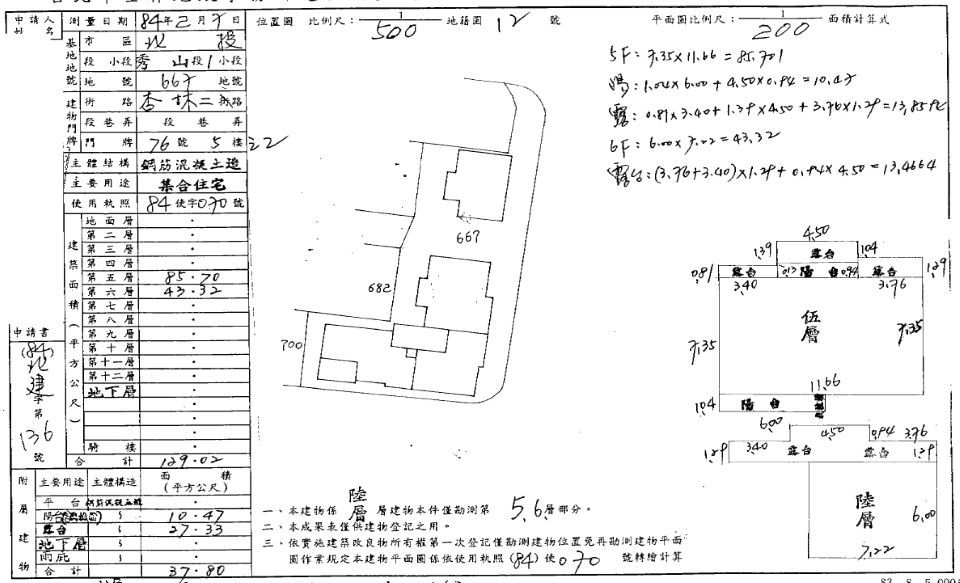 申請人姓名
測量日期 84年2月7日
位置圖 比例尺：1/500 地籍圖 12 號
平面圖比例尺：1/200 面積計算式
基地地號
市區 北投
段小段 秀山段1小段
地號 667 地號
建物門牌
街路 杏林二街路
段巷弄 段巷弄
門牌 76號5樓
主體結構 鋼筋混凝土造
主要用途 集合住宅
使用執照 84使字070號
建築面積(平方公尺)
地面層
第二層
第三層
第四層
第五層 85.70
第六層 43.32
第七層
第八層
第九層
第十層
第十一層
第十二層
地下層
騎樓
合計 129.02
申請書
(84)
北
建
字
第
136
號
附屬建物
主要用途 主體構造 面積(平方公尺)
平台
陽台 10.47
露台 27.33
地下層
雨庇
合計 37.80
5F：7.35×11.66=85.701
陽：1.04×6.00+4.50×0.94=10.47
露：0.81×3.40+1.39×4.50+3.76×1.29=13.8594
6F：6.00×7.22=43.32
露台：(3.76+3.40)×1.29+0.94×4.50=13.4664
667
682
700
4.50
1.39 露台 1.04
0.81 露台 0.13 陽台 0.94 露台 1.29
3.40 3.76
伍層
7.35 7.35
11.66
1.04 陽台
6.00
4.50 0.94 3.76
1.29 3.40 露台 露台 1.29
陸層
6.00
7.22
一、本建物係陸層層建物本件僅勘測第5,6層部分。
二、本成果表僅供建物登記之用。
三、依實施建築改良物所有權第一次登記僅勘測建物位置免再勘測建物平面
圖作業規定本建物平面圖係依使用執照(84)使070號轉繪計算